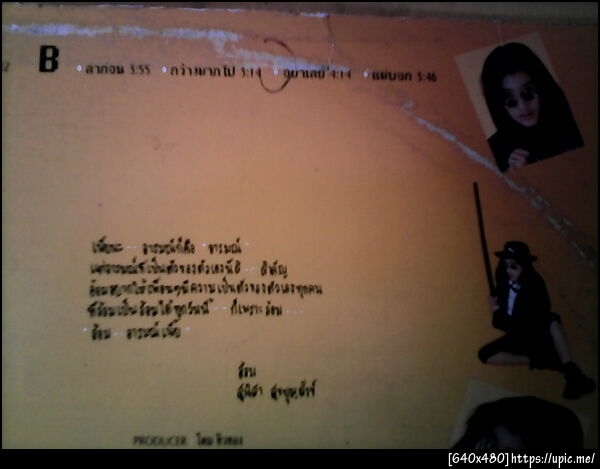 B
ลาก่อน 3:55 กว้างมากไป 3:14 อย่าเลย 4:14 แม่บอก 3:46
อารมณ์ก็คือ อารมณ์
แต่อารมณ์ที่เป็นตัวของตัวเองนี่สิ สำคัญ
อ้อนอยากให้เพื่อนๆมีความเป็นตัวของตัวเองทุกคน
ที่อ้อนเป็นอ้อนได้ทุกวันนี้ ก็เพราะอ้อน
อ้อน อารมณ์
อ้อน
PRODUCER
[640x480]https://upic.me/